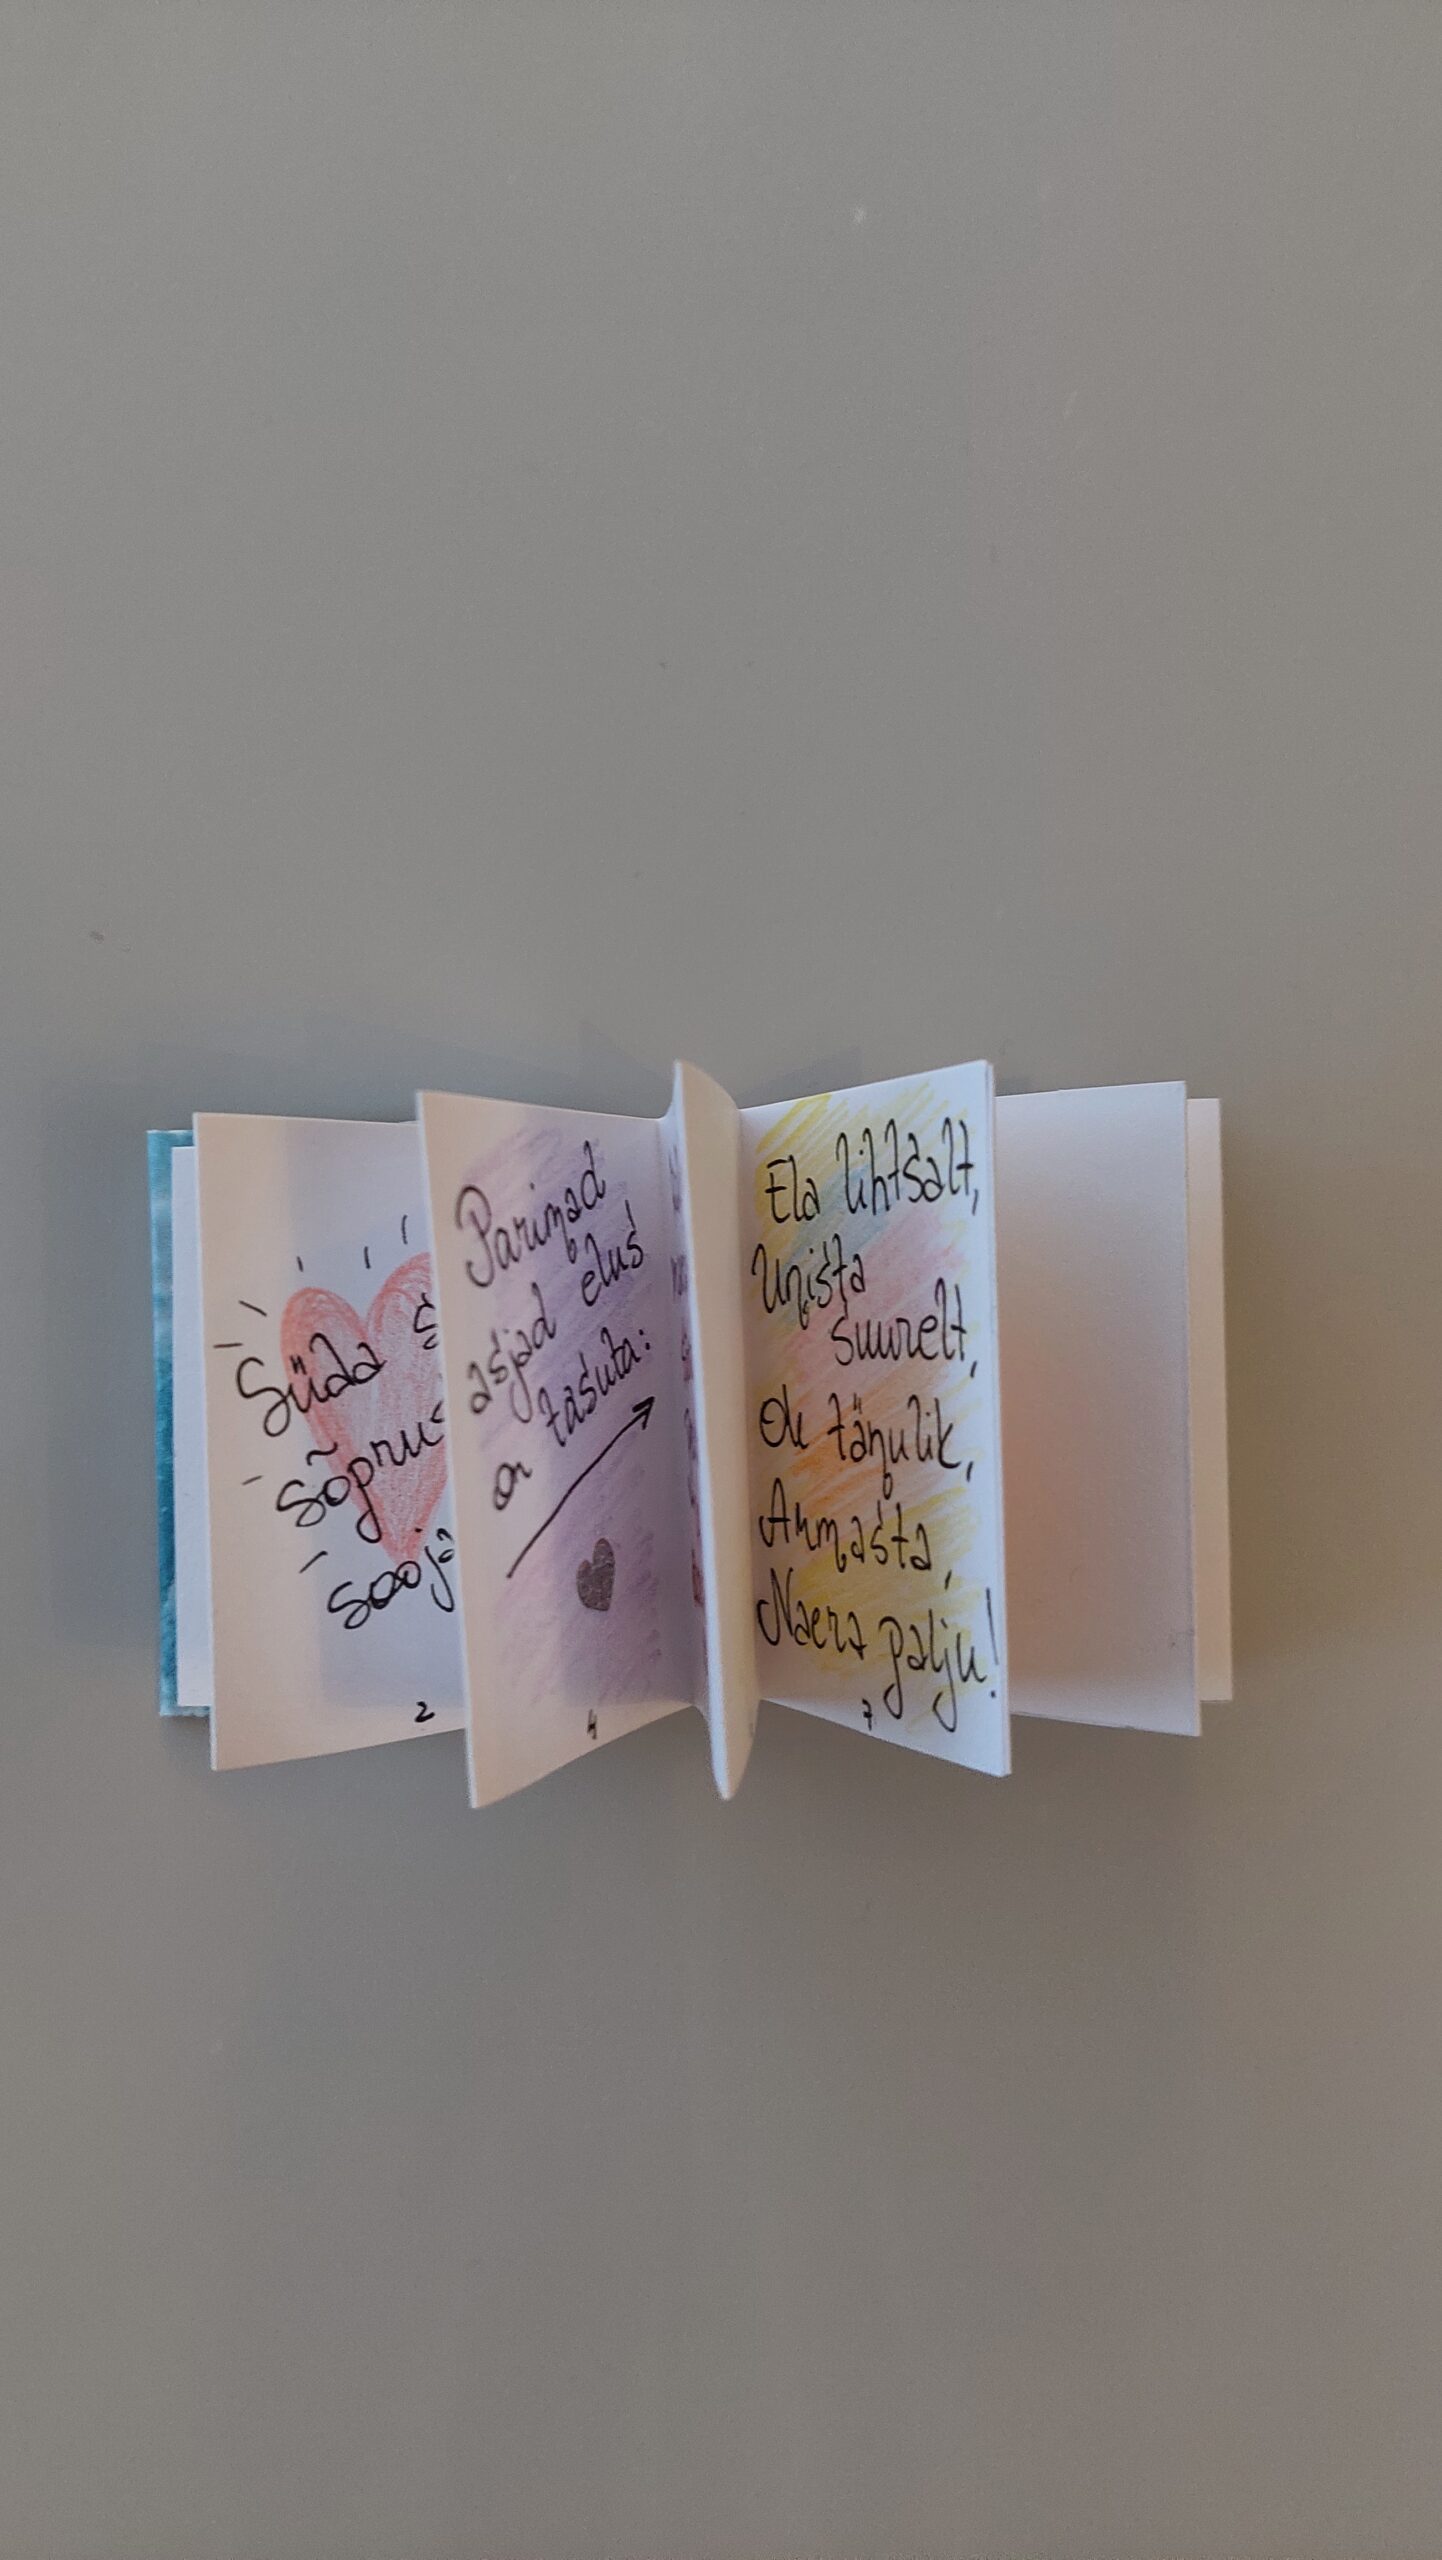 Süda
sooj
2
Parimad
asjad elus
on tasuta:
4
Ela lihtsalt,
Unista
suurelt,
Ole tänulik,
Armasta,
Naera palju!
7